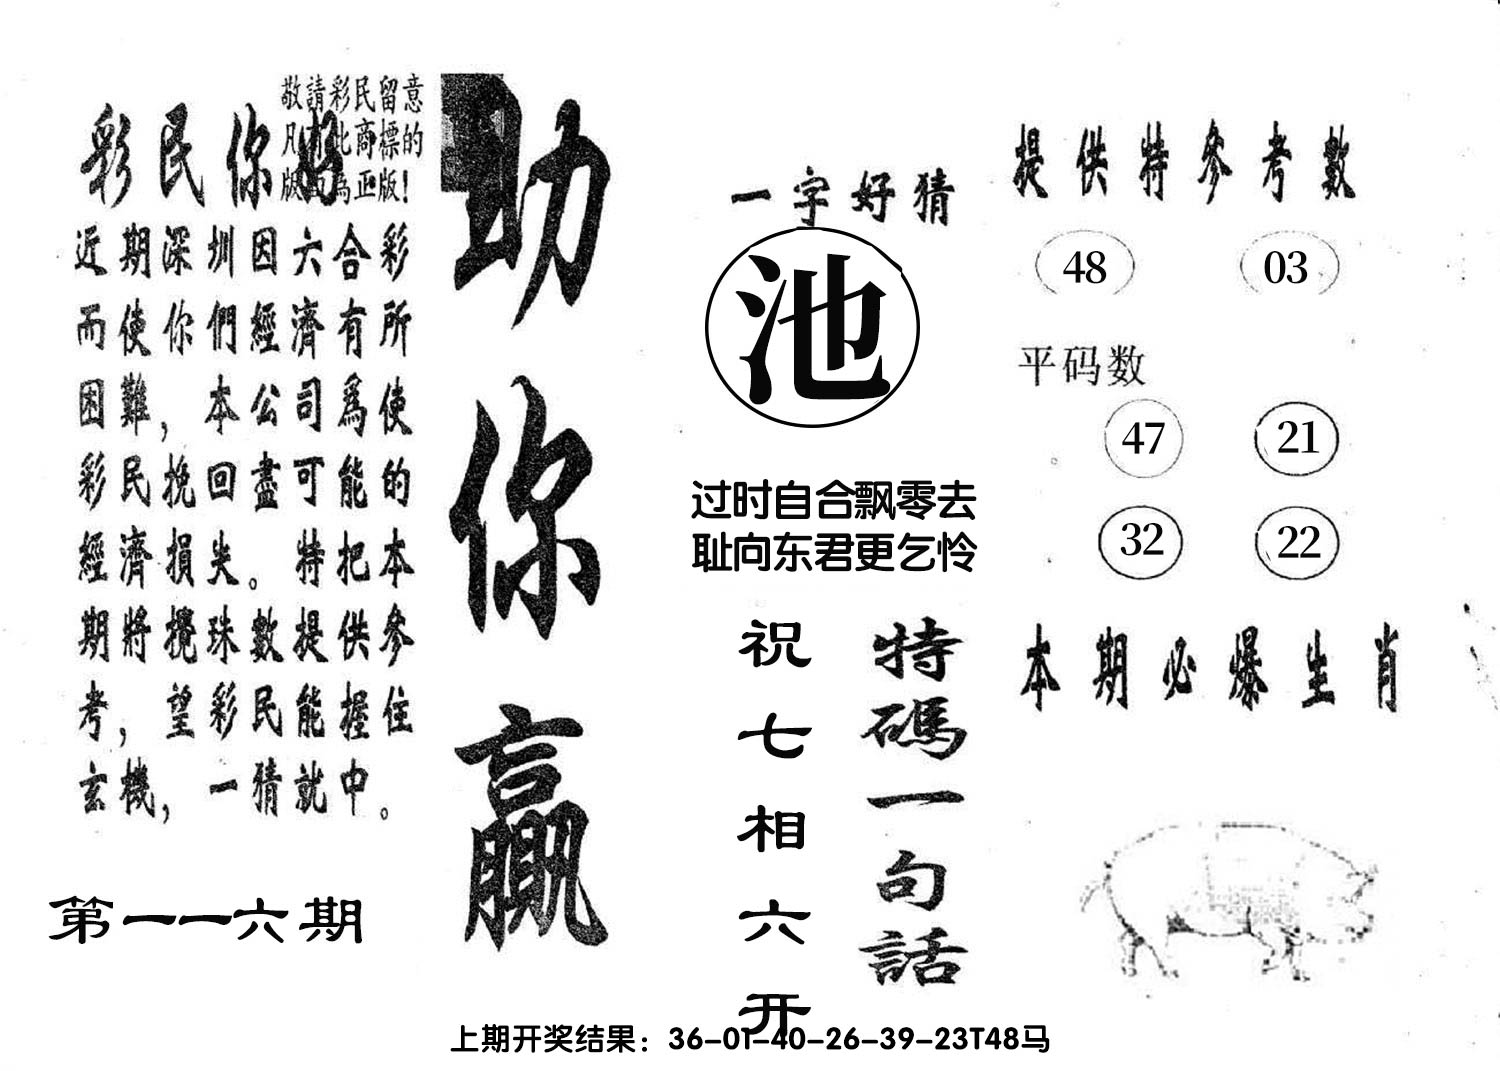 敬請彩民留意
凡有此商標的
版面為正版！
彩民你好
近期深圳因六合彩
而使你們經濟有所
困難，本公司爲使
彩民挽回盡可能的
經濟損失。特把本
期將攪珠數提供參
考，望彩民能握住
玄機，一猜就中。
第一一六期
助你贏
一字好猜
池
过时自合飘零去
耻向东君更乞怜
特碼一句話
祝七相六开
提供特參考數
48 03
平码数
47 21
32 22
本期必爆生肖
上期开奖结果：36-01-40-26-39-23T48马